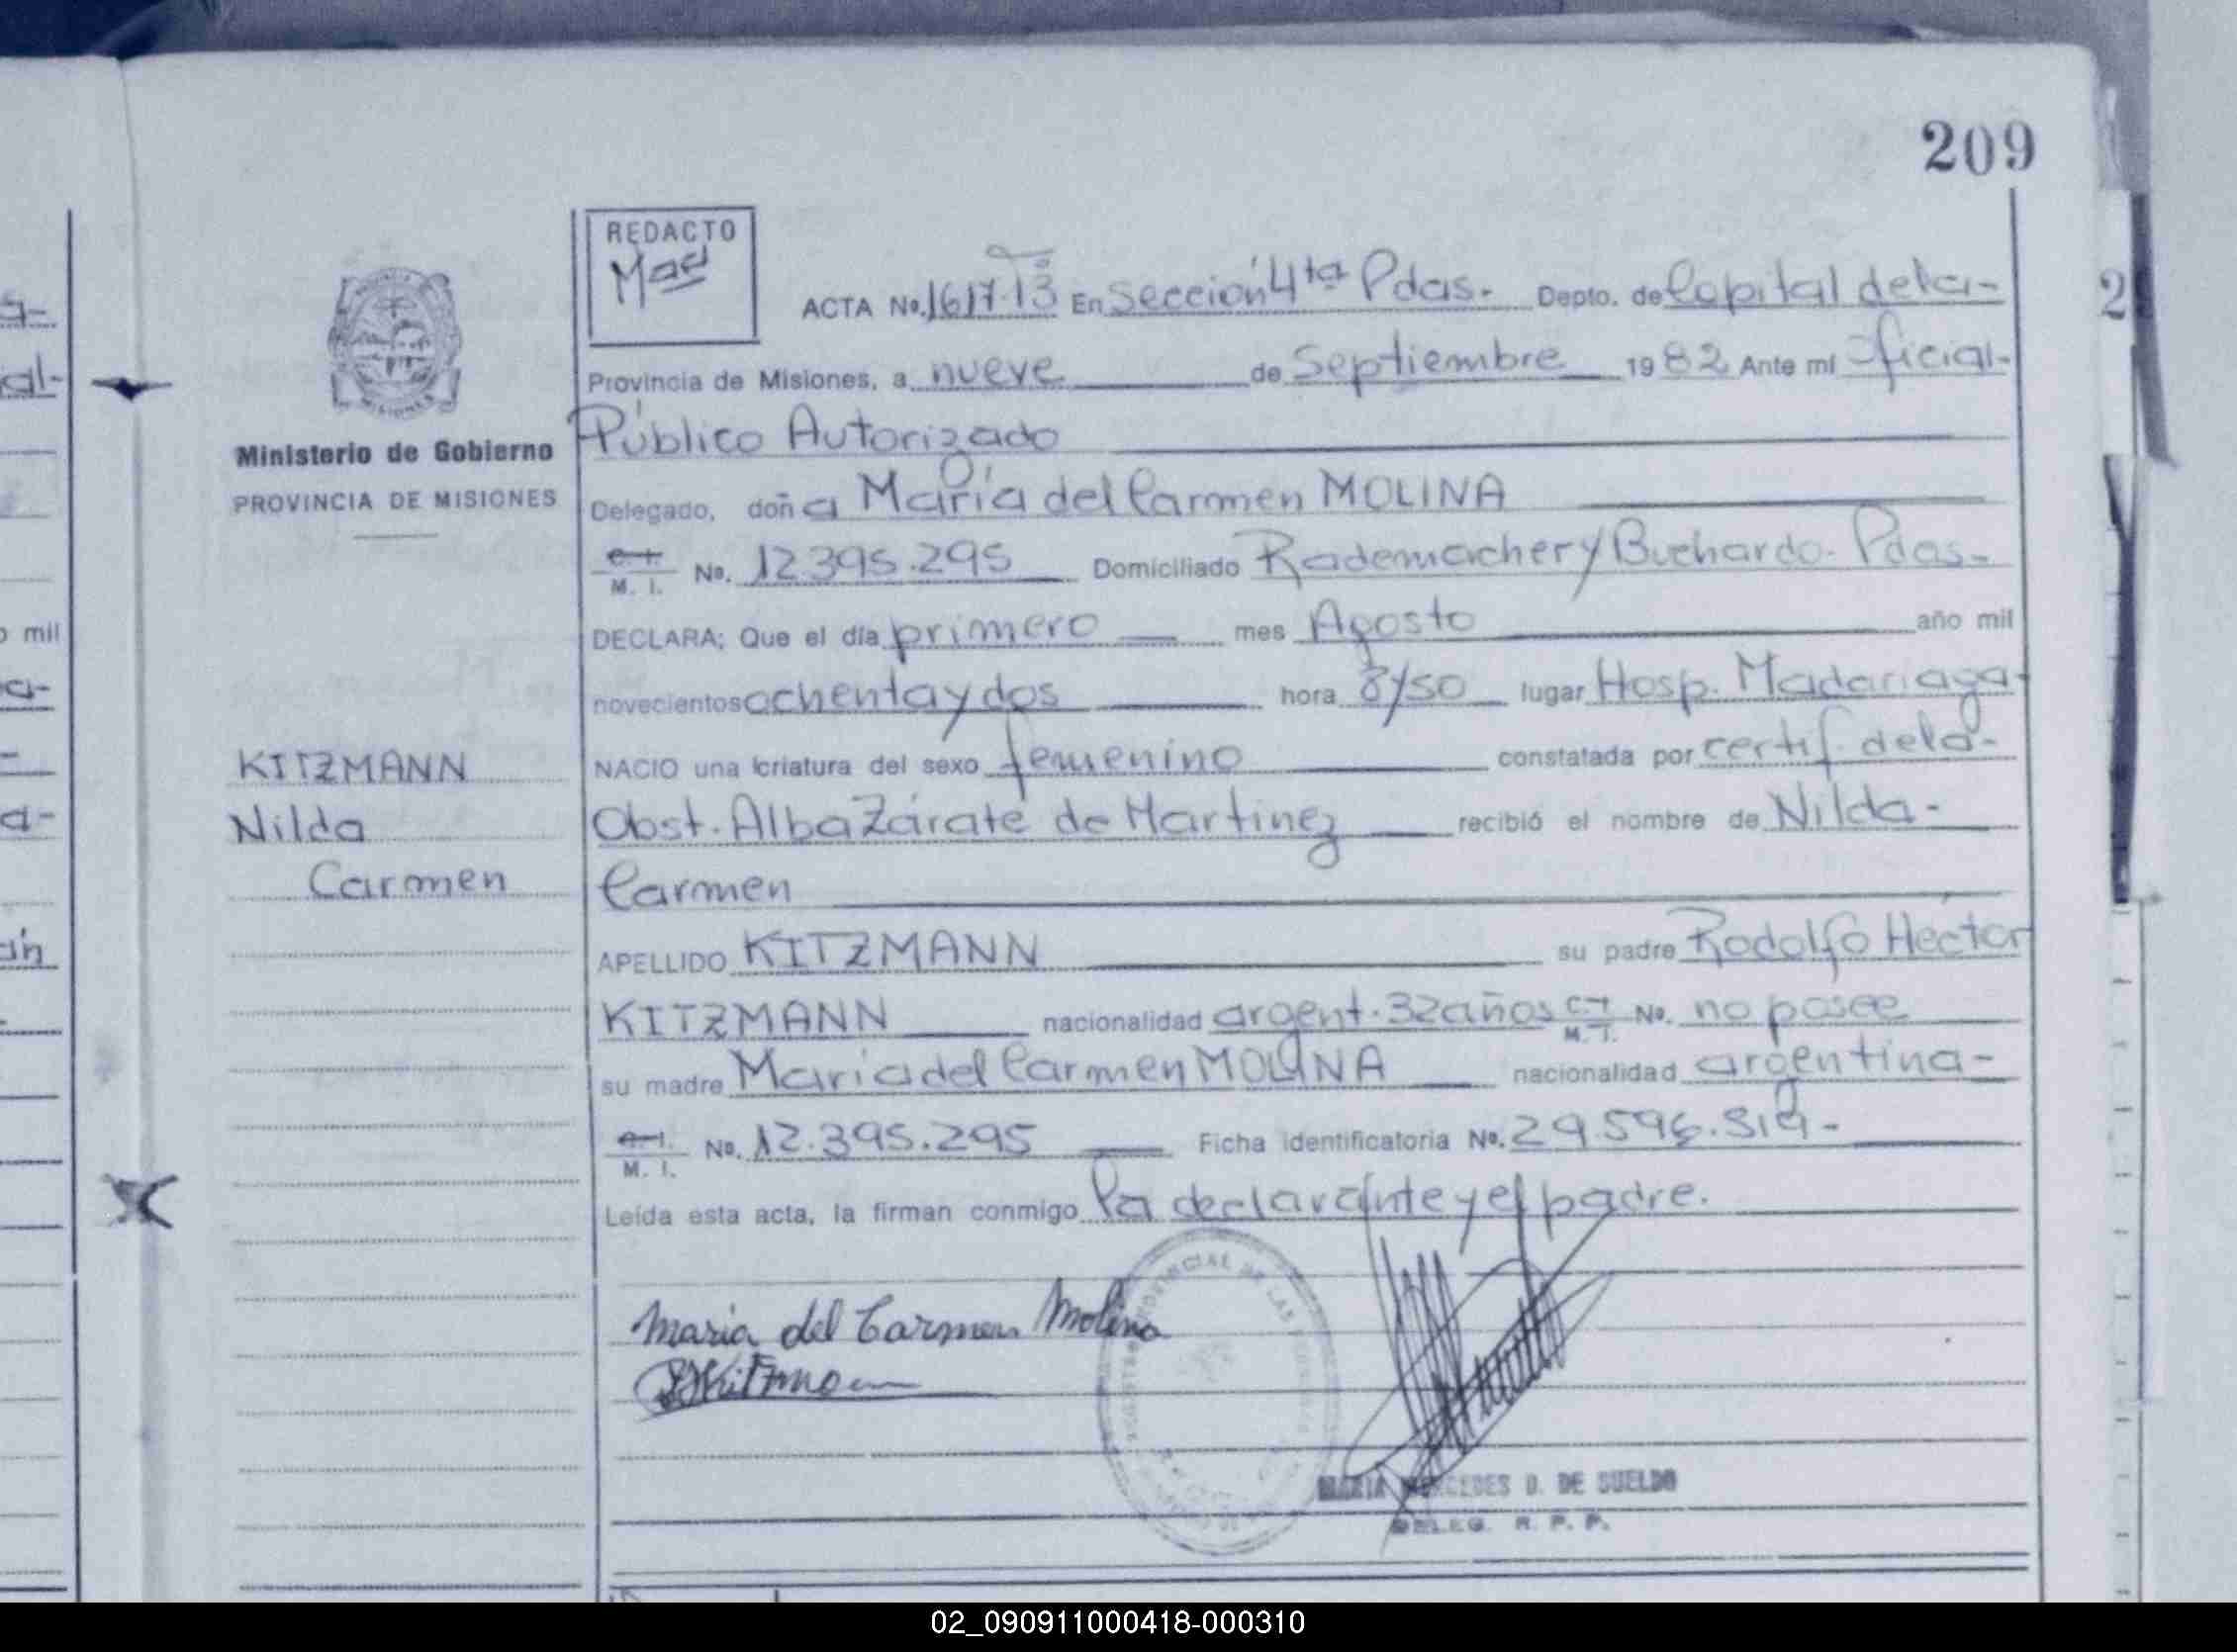 209
REDACTO
ACTA No. 1617 Tº 13 En Sección 4ta Pdas. Depto. de Capital de la-
Provincia de Misiones, a nueve de Septiembre 1982 Ante mí Oficial-
Público Autorizado
Ministerio de Gobierno
PROVINCIA DE MISIONES
Delegado, doña María del Carmen MOLINA
C. I. M. I. No. 12.395.295 Domiciliado Rademacher y Buchardo. Pdas-
DECLARA; Que el día primero mes Agosto año mil
novecientos ochenta y dos hora 8y50 lugar Hosp. Madariaga-
NACIO una criatura del sexo femenino constatada por certif. de la-
Obst. Alba Zárate de Martinez recibió el nombre de Nilda-
Carmen
KITZMANN
Nilda
Carmen
APELLIDO KITZMANN su padre Rodolfo Héctor
KITZMANN nacionalidad argent. 32 años C. I. M. I. No. no posee
su madre María del Carmen MOLINA nacionalidad argentina-
C. I. M. I. No. 12.395.295 Ficha identificatoria No. 29.596.319-
Leída esta acta, la firman conmigo la declarante y el padre.
Maria del Carmen Molina
Kitzmann
MARIA MERCEDES D. DE SUELDO
DELEG. R. P. P.
02_090911000418-000310